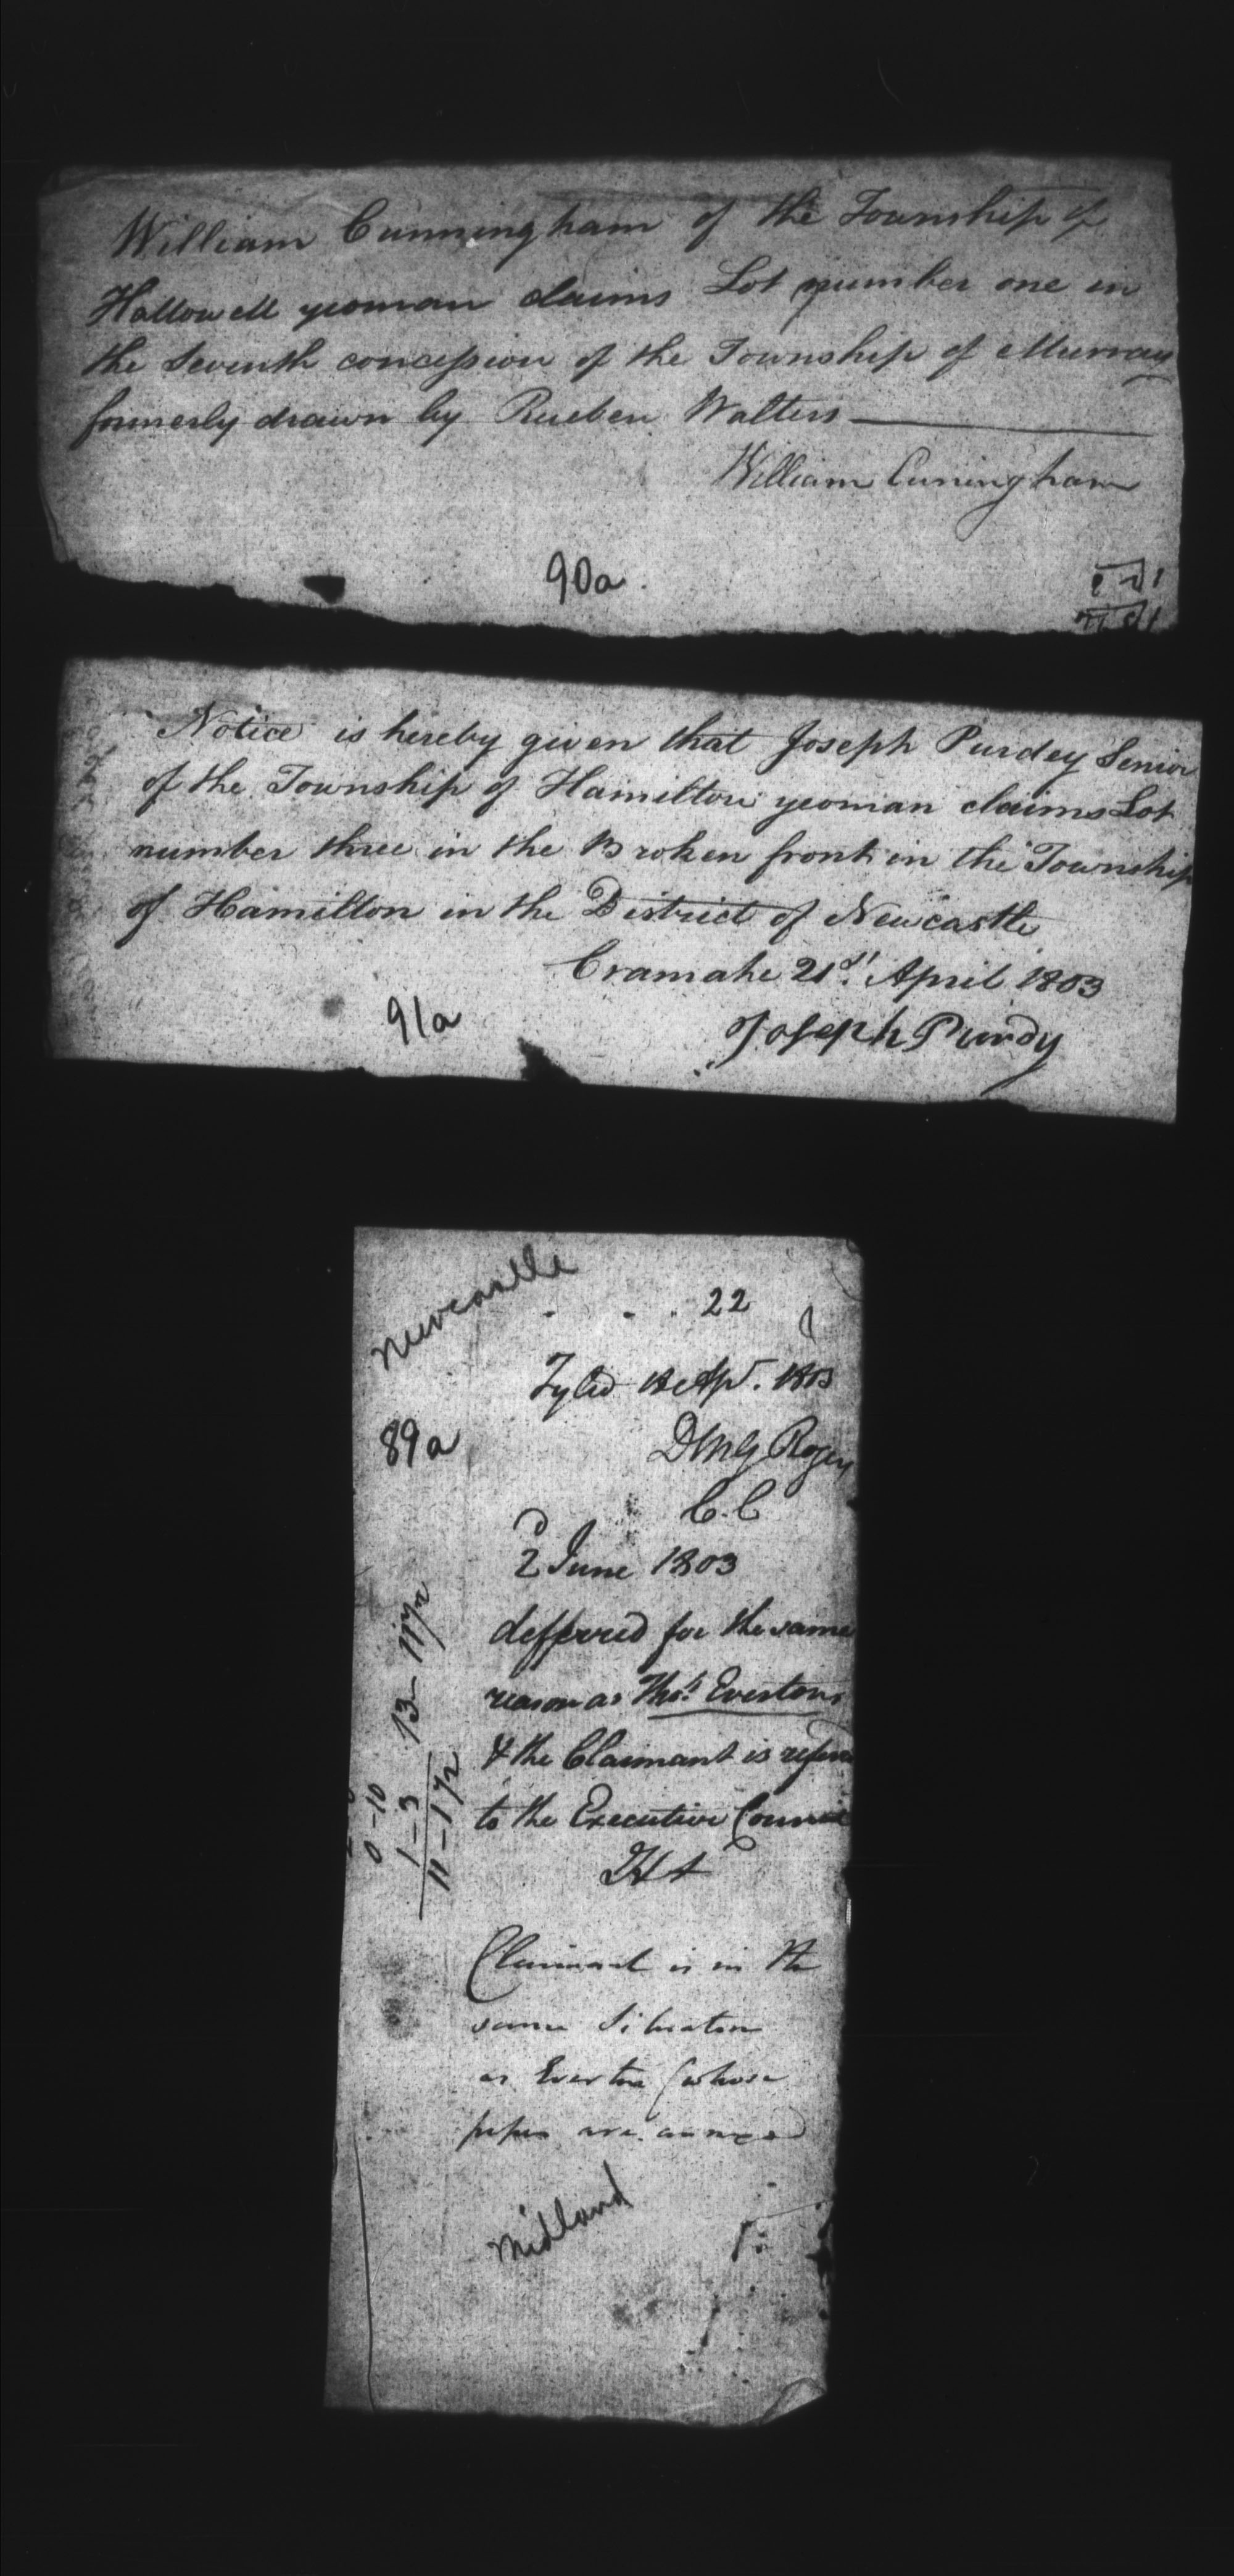 William Cunningham of the Township of
Hallowell yeoman claims Lot number one in
the Seventh concession of the Township of Murray
formerly drawn by Rueben Walters
William Cuningham
90a
Notice is hereby given that Joseph Purdey Senior
of the Township of Hamilton yeoman claims Lot
number three in the Broken front in the Township
of Hamilton in the District of Newcastle
Cramahe 21st April 1803
Joseph Purdy
91a
Newcastle
22
Fyled 18 Apl. 1803
89a
DMG Rogers
C.C
2 June 1803
defferred for the same
reason as Thos. Evertons
& the Claimant is referred
to the Executive Council
13
0-10
1-3
Claimant is in the
same Situation
as Everton (whose
papers are annexed
Midland